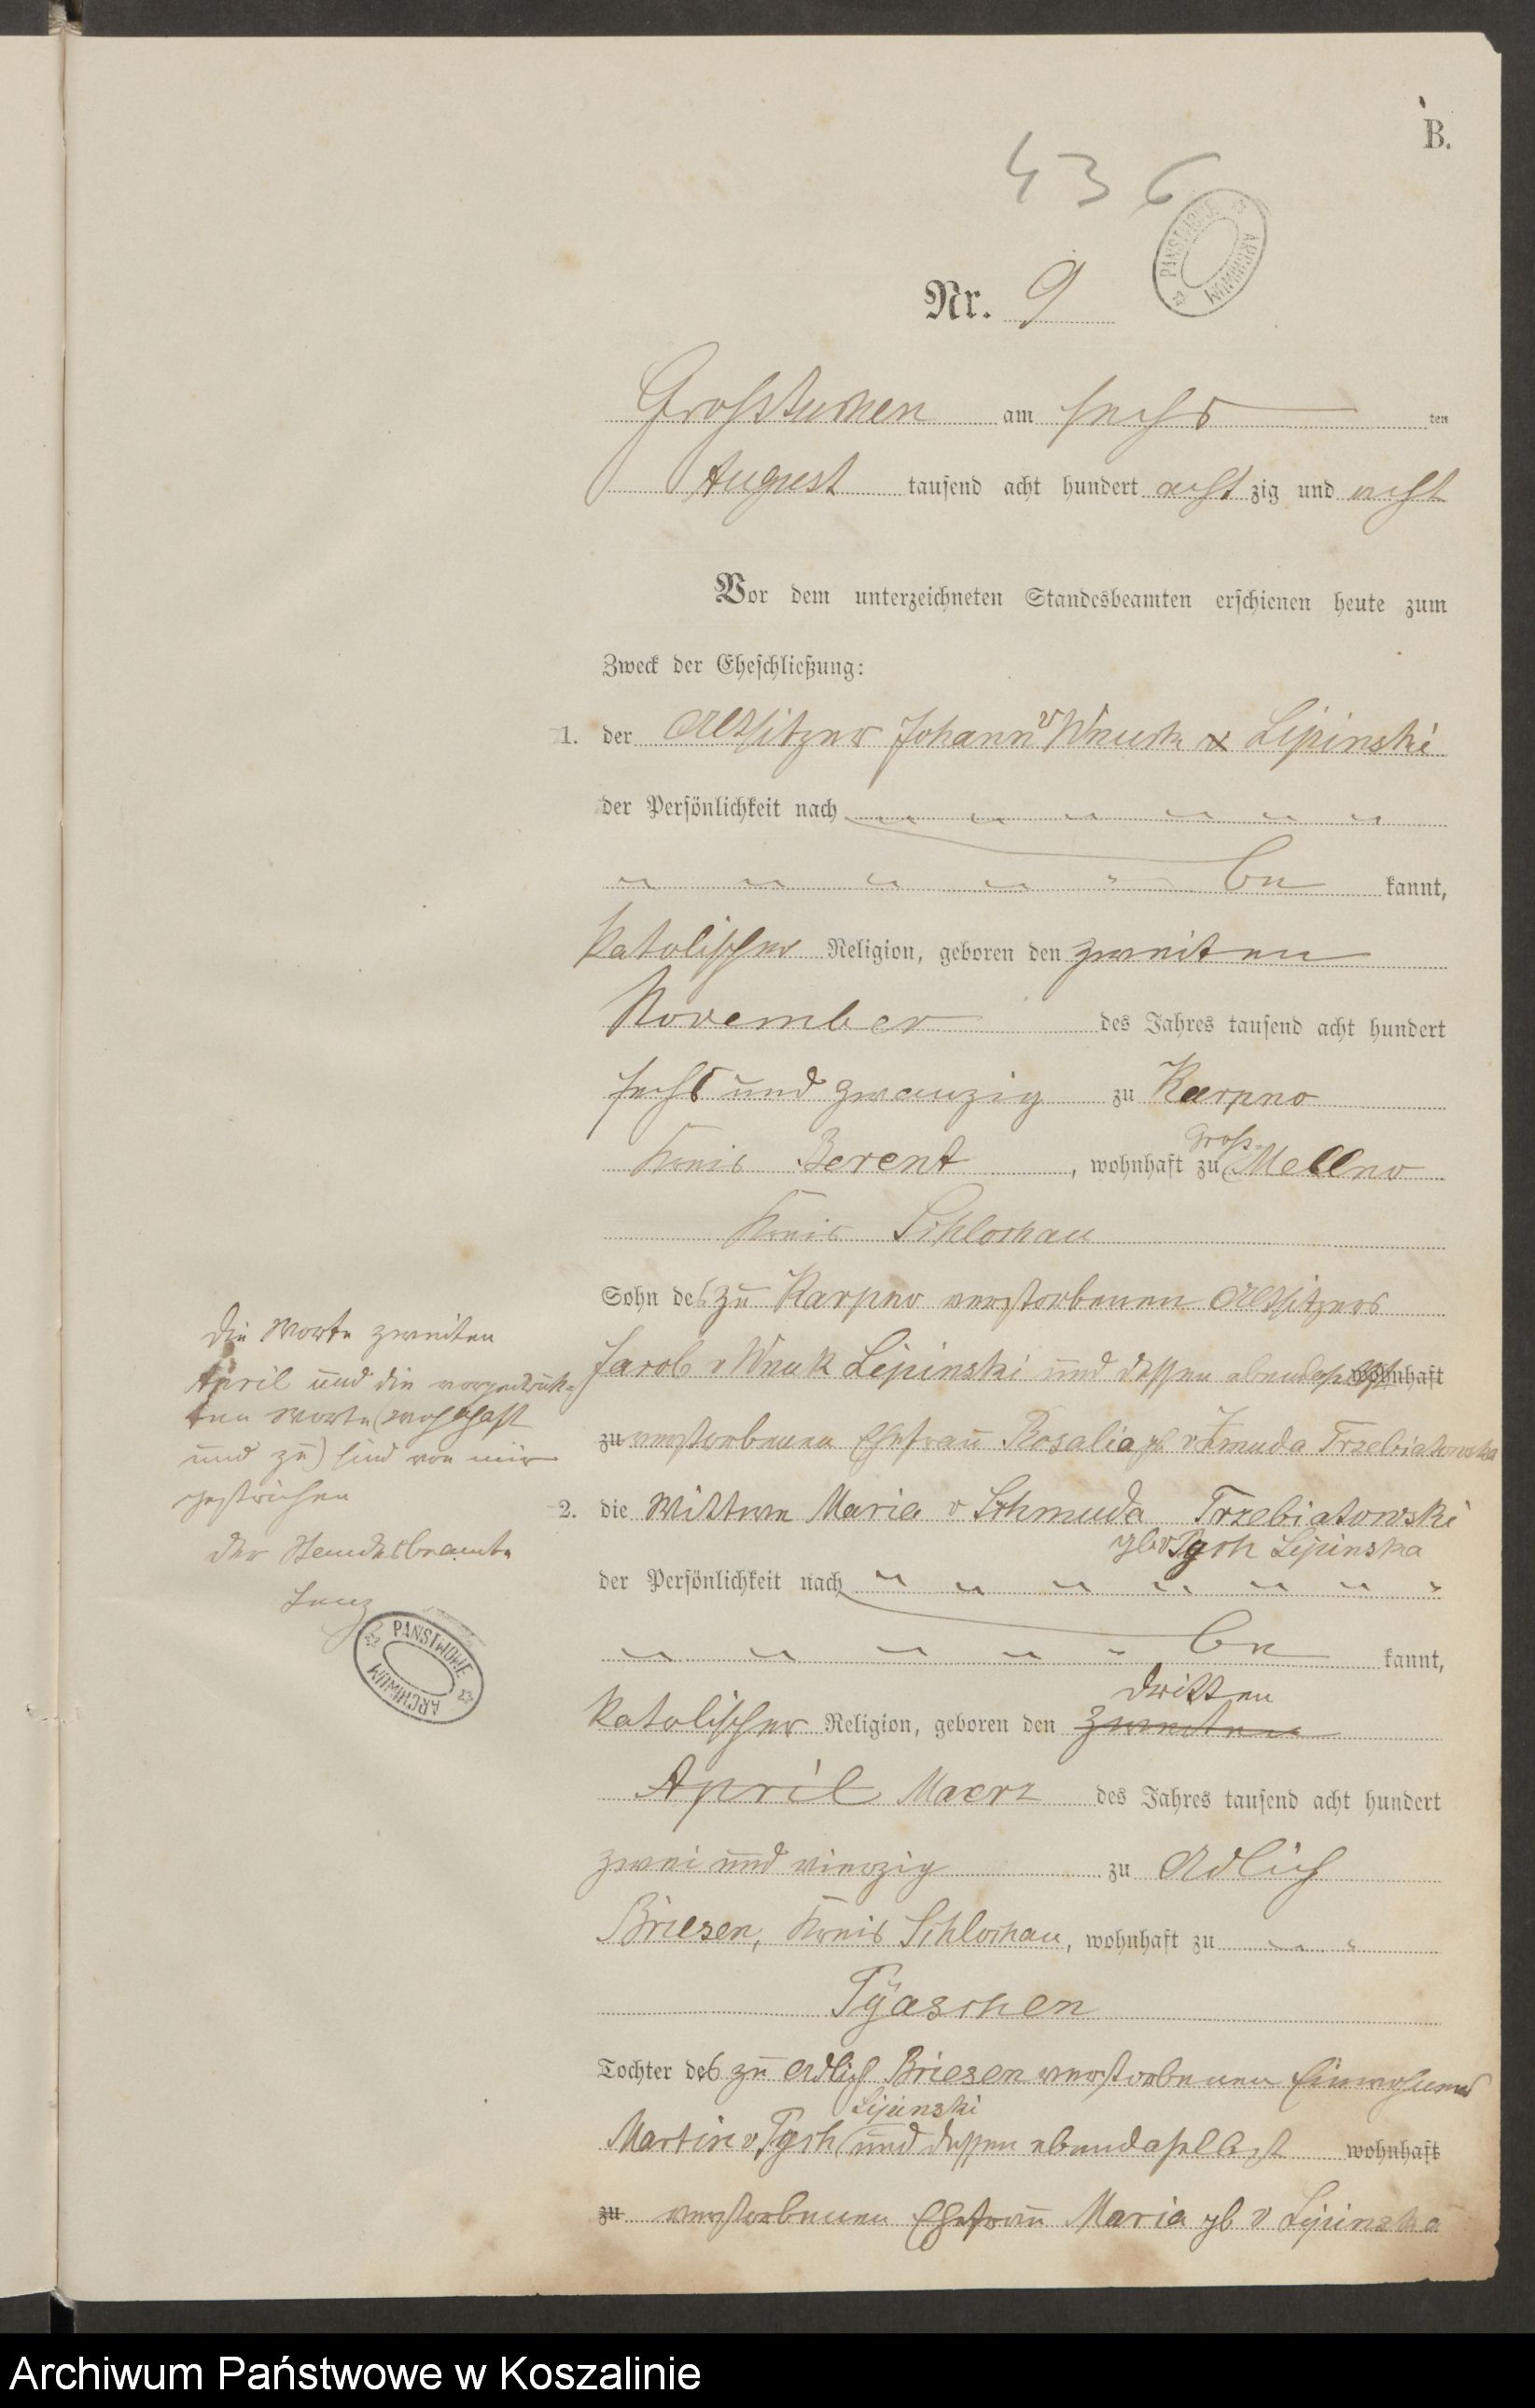 B.
436
PANSTWOWE ARCHIWUM
Nr. 9
Grosstuchen am sechs ten
August tausend acht hundert acht zig und acht
Vor dem unterzeichneten Standesbeamten erschienen heute zum
Zweck der Eheschließung:
1. der Altsitzer Johann v Wnuck v Lipinski
der Persönlichkeit nach
be kannt,
katolischer Religion, geboren den zweiten
November des Jahres tausend acht hundert
sechs und zwanzig zu Karpno
Kreis Berent, wohnhaft zu Gross Mellno
Kreis Schlochau
Sohn des zu Karpno verstorbenen Altsitzers
Jacob v Wnuk Lipinski und dessen ebendaselbst wohnhaft
zu verstorbenen Ehefrau Rosalia gb v Zmuda Trzebiatowska
2. die Wittwe Maria v Schmuda Trzebiatowski
gb v Pych Lipinska
der Persönlichkeit nach
be kannt,
dritten
katolischer Religion, geboren den zweiten
April Maerz des Jahres tausend acht hundert
zwei und vierzig zu Adlich
Briesen, Kreis Schlochau, wohnhaft zu
Tschaschen
Tochter des zu Adlich Briesen verstorbenen Einwohners
Lipinski
Martin v Pych und dessen ebendaselbst wohnhaft
zu verstorbenen Ehefrau Maria gb v Lipinska
Die Worte zweiten
April und die vorgedruck-
ten Worte (wohnhaft
und zu) sind von mir
gestrichen
Der Standesbeamte
PANSTWOWE ARCHIWUM
Archiwum Państwowe w Koszalinie